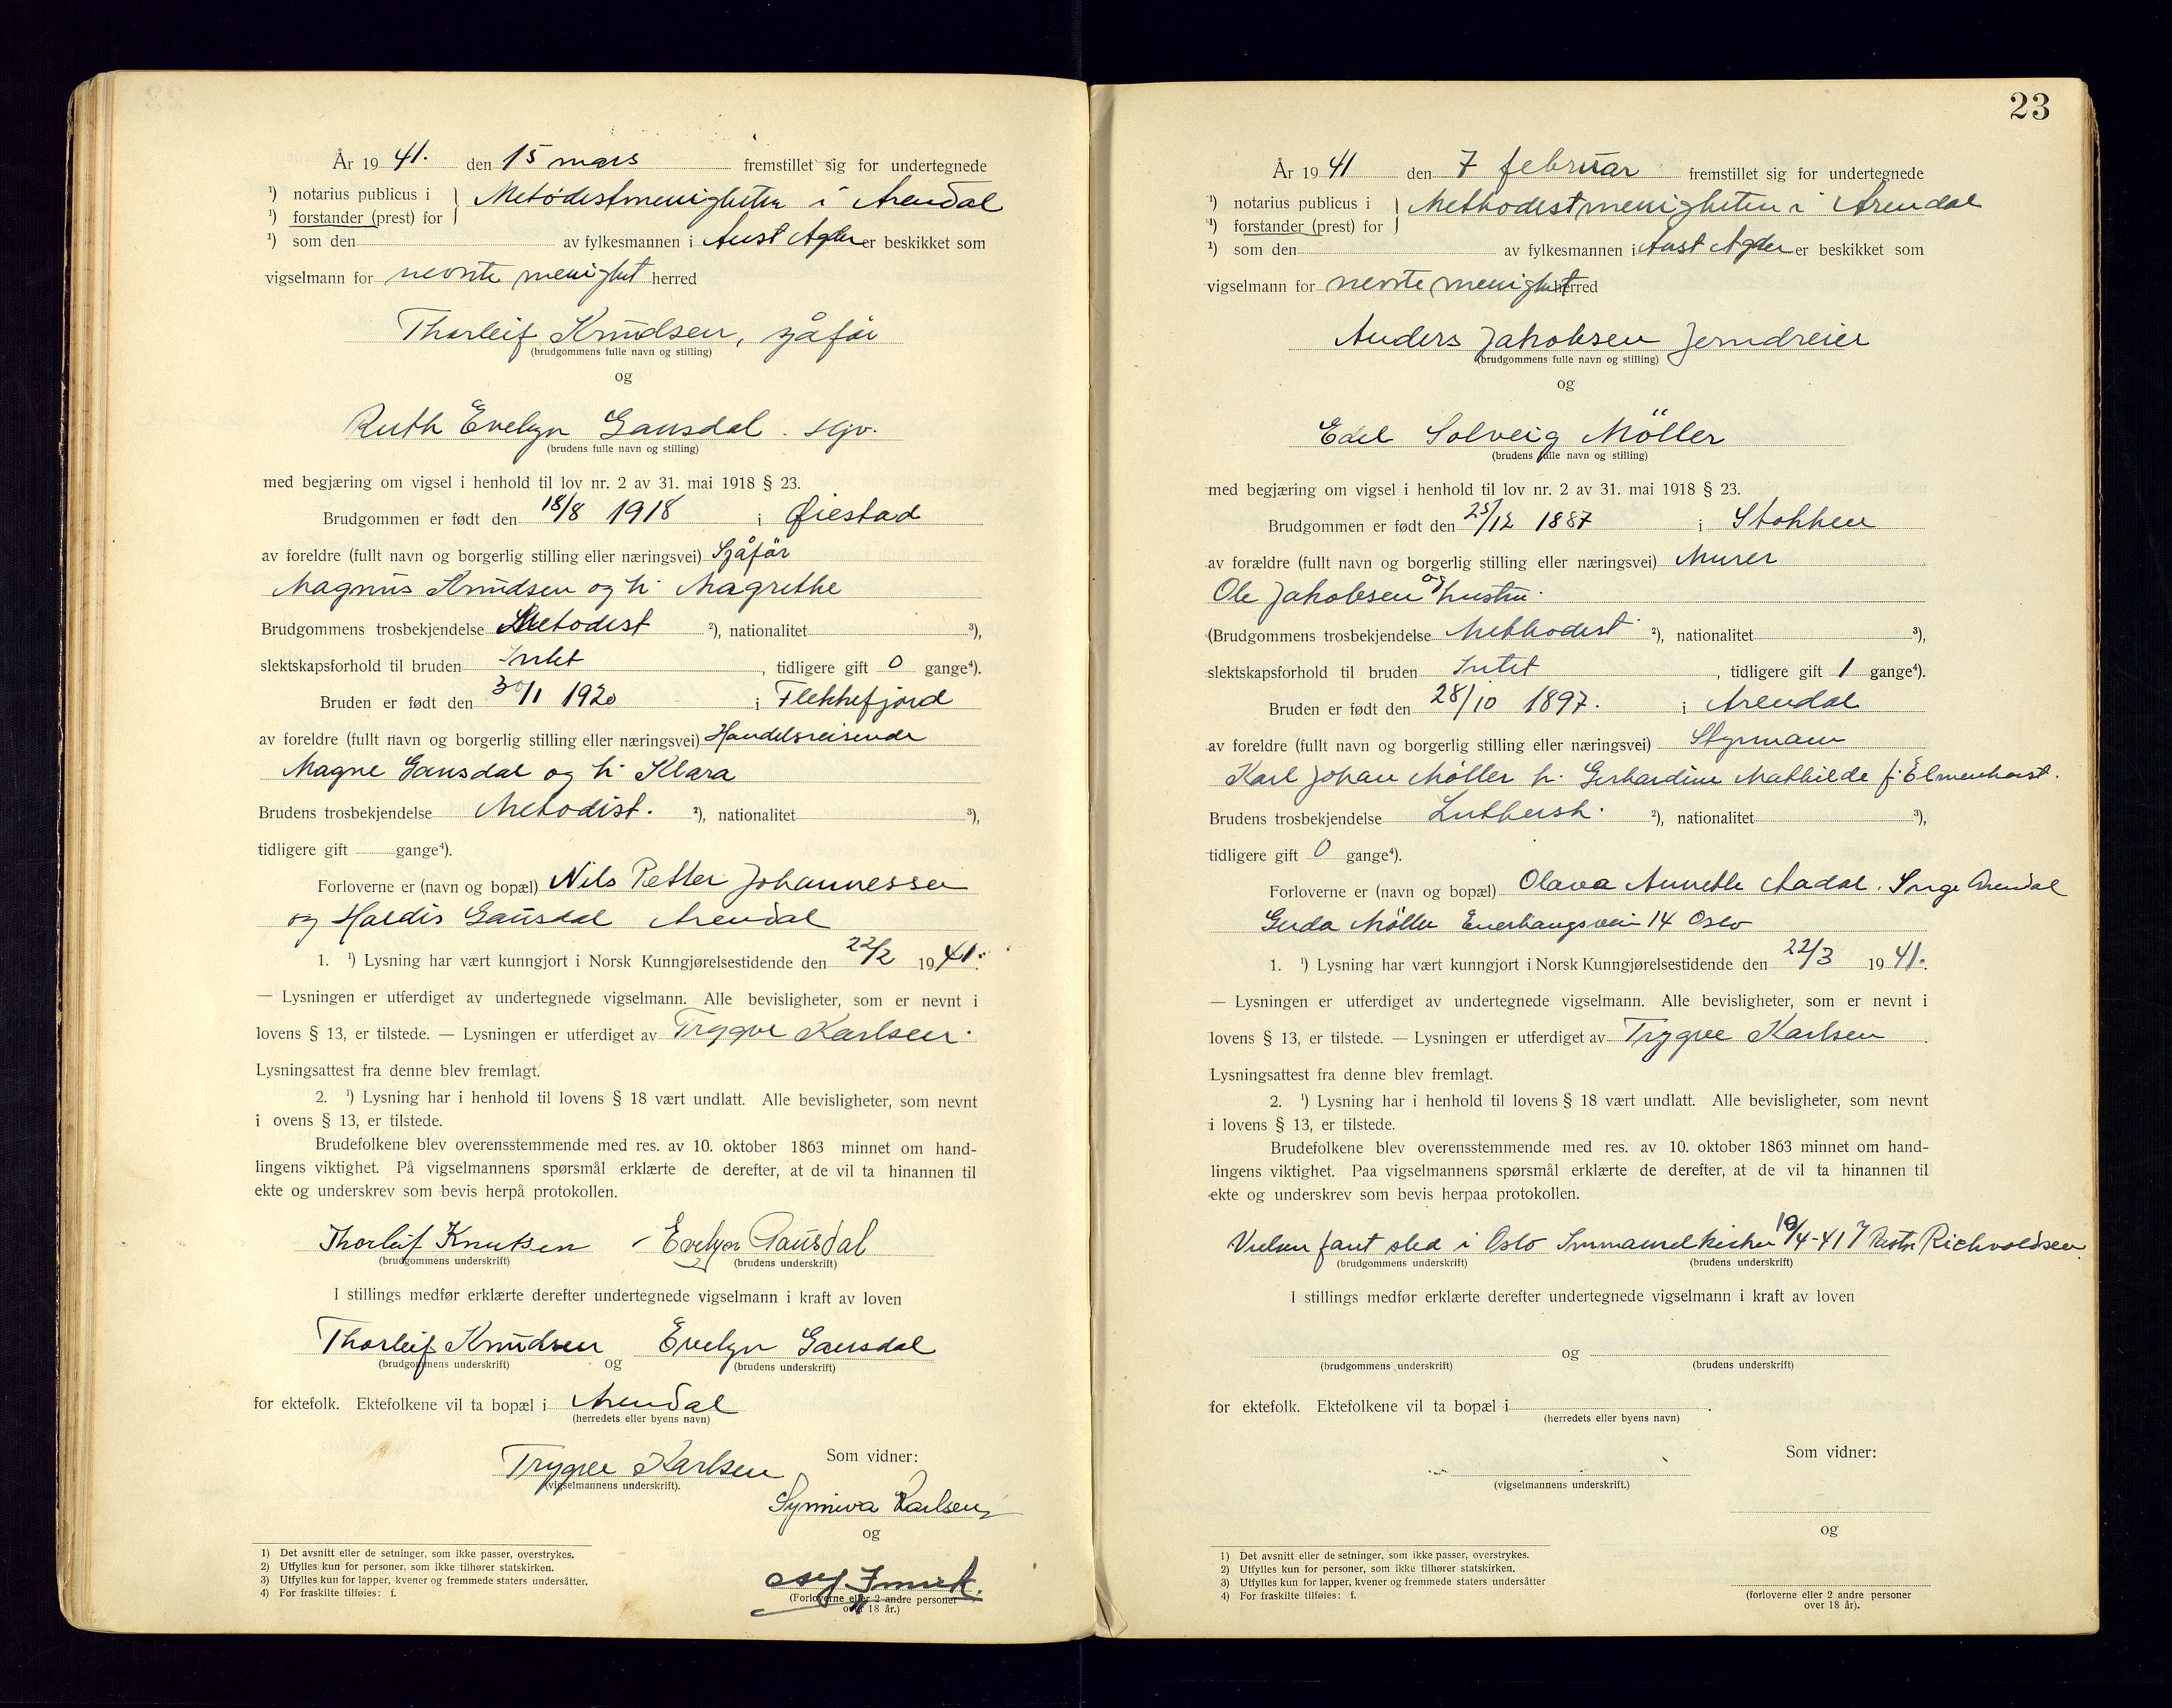 År 19 41. den 15 mars fremstillet sig for undertegnede
¹) notarius publicus i
¹) forstander (prest) for } Metodestmenigheten i Arendal
¹) som den av fylkesmannen i Aust Agder er beskikket som
vigselmann for nevnte menighet herred
Thorleif Knudsen, sjåfør
(brudgommens fulle navn og stilling)
og
Ruth Evelyn Gausdal.
(brudens fulle navn og stilling)
med begjæring om vigsel i henhold til lov nr. 2 av 31. mai 1918 § 23.
Brudgommen er født den 18/8 1918 i Øiestad
av foreldre (fullt navn og borgerlig stilling eller næringsvei) Sjåfør
Magnus Knudsen og h. Magrethe
Brudgommens trosbekjendelse Metodist ²), nationalitet ³),
slektskapsforhold til bruden Intet, tidligere gift 0 gange⁴).
Bruden er født den 30/1 1920 i Flekkefjord
av foreldre (fullt navn og borgerlig stilling eller næringsvei) Handelsreisende
Magne Gausdal og h. Klara
Brudens trosbekjendelse Metodist. ²), nationalitet ³),
tidligere gift gange⁴).
Forloverne er (navn og bopæl) Nils Petter Johannessen
og Haldis Gausdal Arendal
1. ¹) Lysning har vært kunngjort i Norsk Kunngjørelsestidende den 22/2 1941.
— Lysningen er utferdiget av undertegnede vigselmann. Alle bevisligheter, som er nevnt i
lovens § 13, er tilstede. — Lysningen er utferdiget av Trygve Karlsen.
Lysningsattest fra denne blev fremlagt.
2. ¹) Lysning har i henhold til lovens § 18 vært undlatt. Alle bevisligheter, som nevnt
i ovens § 13, er tilstede.
Brudefolkene blev overensstemmende med res. av 10. oktober 1863 minnet om hand-
lingens viktighet. På vigselmannens spørsmål erklærte de derefter, at de vil ta hinannen til
ekte og underskrev som bevis herpå protokollen.
Thorleif Knutsen - Evelyn Gausdal
(brudgommens underskrift) (brudens underskrift)
I stillings medfør erklærte derefter undertegnede vigselmann i kraft av loven
Thorleif Knudsen og Evelyn Gausdal
(brudgommens underskrift) (brudens underskrift)
for ektefolk. Ektefolkene vil ta bopæl i Arendal
(herredets eller byens navn)
Trygve Karlsen
(vigselmannens underskrift).
Som vidner:
Synniva Karlsen
og
(Forloverne eller 2 andre personer
over 18 år.)
1) Det avsnitt eller de setninger, som ikke passer, overstrykes.
2) Utfylles kun for personer, som ikke tilhører statskirken.
3) Utfylles kun for lapper, kvener og fremmede staters undersåtter.
4) For fraskilte tilføies: f.
23
År 19 41 den 7 februar fremstillet sig for undertegnede
¹) notarius publicus i
¹) forstander (prest) for } Methodestmenigheten i Arendal
¹) som den av fylkesmannen i Aust Agder er beskikket som
vigselmann for nevnte menighet herred
Anders Jakobsen Jerndreier
(brudgommens fulle navn og stilling)
og
Edel Solveig Möller
(brudens fulle navn og stilling)
med begjæring om vigsel i henhold til lov nr. 2 av 31. mai 1918 § 23.
Brudgommen er født den 25/12 1887 i Stokken
av forældre (fullt navn og borgerlig stilling eller næringsvei) Murer
Ole Jakobsen og hustru.
(Brudgommens trosbekjendelse Methodist ²), nationalitet ³),
slektskapsforhold til bruden Intet, tidligere gift 1 gange⁴).
Bruden er født den 28/10 1897. i Arendal
av foreldre (fullt navn og borgerlig stilling eller næringsvei) Styrmann
Karl Johan Möller h. Gerhardine Mathilde f. Elmenhorst.
Brudens trosbekjendelse Luthersk. ²), nationalitet ³),
tidligere gift 0 gange⁴).
Forloverne er (navn og bopæl) Olava Annette Aadal. Songe Arendal
Gerda Möller Enerhaugsvein 14 Oslo
1. ¹) Lysning har vært kunngjort i Norsk Kunngjørelsestidende den 22/3 1941.
— Lysningen er utferdiget av undertegnede vigselmann. Alle bevisligheter, som er nevnt i
lovens § 13, er tilstede. — Lysningen er utferdiget av Trygve Karlsen.
Lysningsattest fra denne blev fremlagt.
2. ¹) Lysning har i henhold til lovens § 18 vært undlatt. Alle bevisligheter, som nevnt
i lovens § 13, er tilstede.
Brudefolkene blev overensstemmende med res. av 10. oktober 1863 minnet om hand-
lingens viktighet. Paa vigselmannens spørsmål erklærte de derefter, at de vil ta hinannen til
ekte og underskrev som bevis herpaa protokollen.
Vielsen fant sted i Oslo Immanuelkirken 10/4-41 Pastor Richvoldsen
(brudgommens underskrift) (brudens underskrift)
I stillings medfør erklærte derefter undertegnede vigselmann i kraft av loven
og
(brudgommens underskrift) (brudens underskrift)
for ektefolk. Ektefolkene vil ta bopæl i
(herredets eller byens navn)
Som vidner:
(vigselmannens underskrift.)
og
(forloverne eller 2 andre personer
over 18 år).
1) Det avsnitt eller de setninger, som ikke passer, overstrykes.
2) Utfylles kun for personer, som ikke tilhører statskirken.
3) Utfylles kun for lapper, kvener og fremmede staters undersåtter
4) For fraskilte tilføies: f.